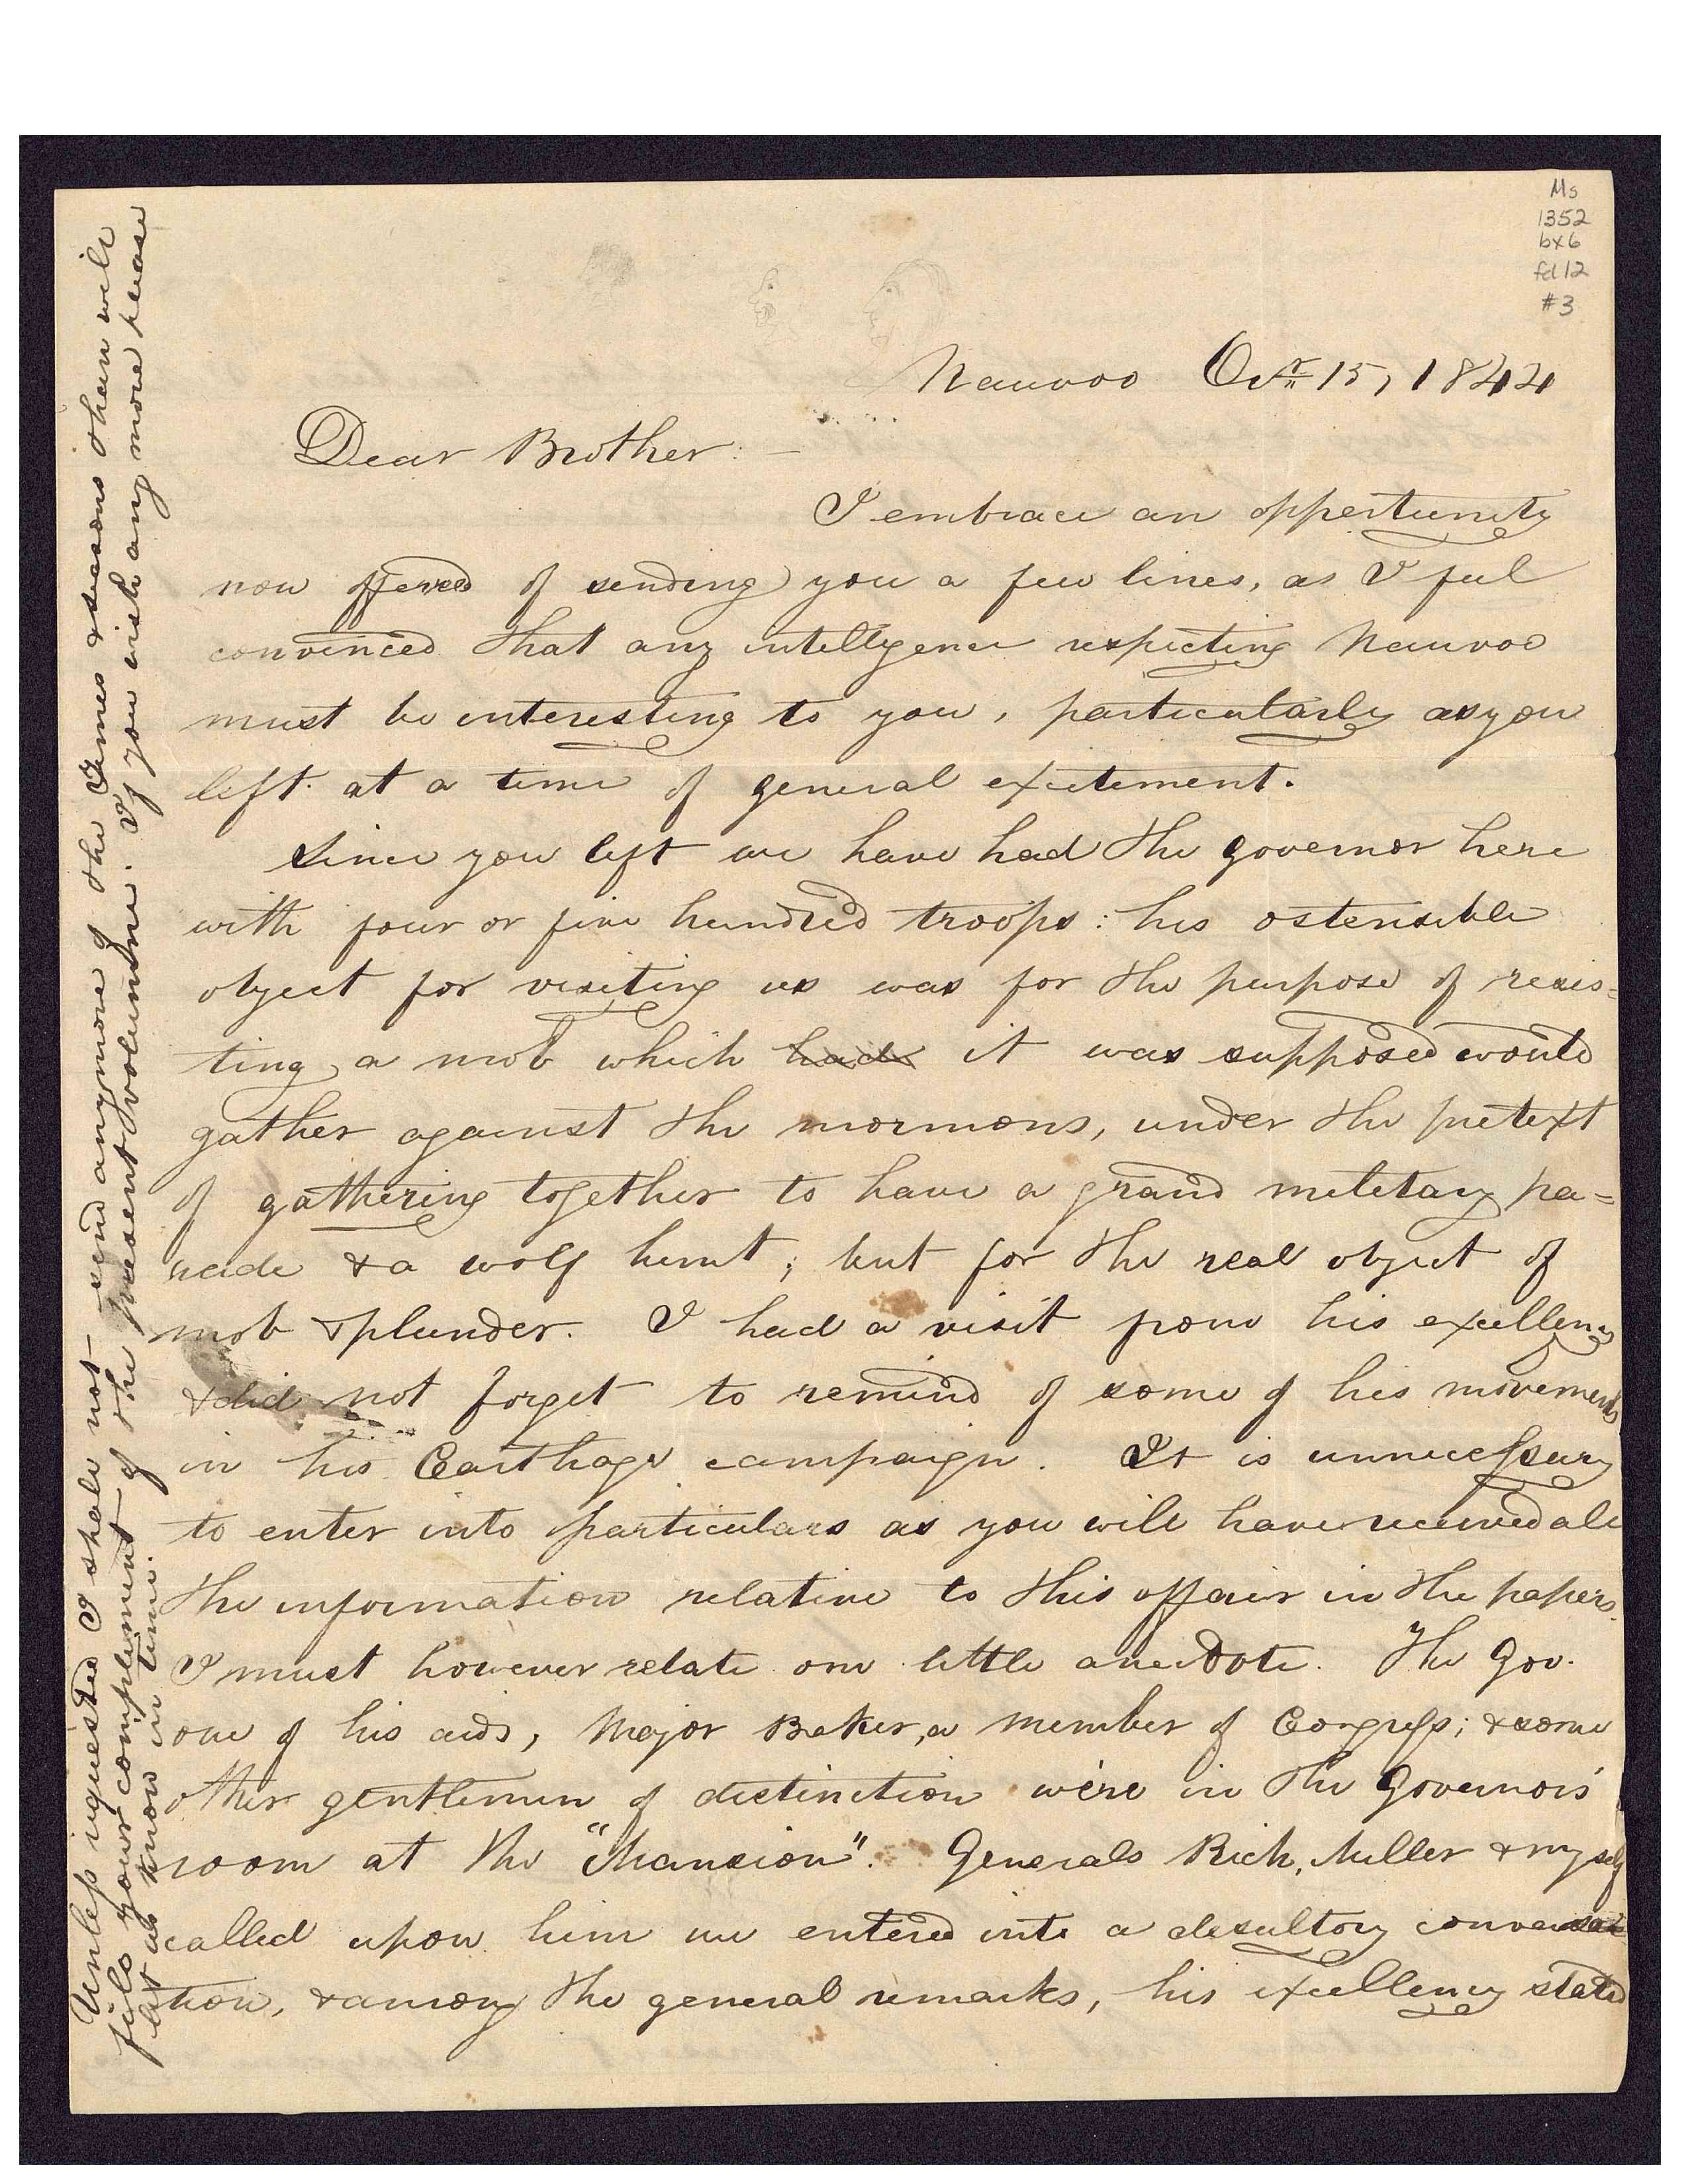 Ms
1352
bx6
fd 12
#3
Nauvoo Octr 15, 1844
Dear Brother: —
I embrace an oppertunity
now offered of sending you a few lines, as I feel
convinced that any intelligence respecting Nauvoo
must be interesting to you, particularly as you
left at a time of general excitement.
Since you left we have had the governor here
with four or five hundred troops: his ostensible
object for visiting us was for the purpose of resis=
ting a mob which had it was supposed would
gather against the mormons, under the pretext
of gathering together to have a grand military pa=
rade & a wolf hunt; but for the real object of
mob & plunder. I had a visit from his excellency
& did not forget to remind of some of his movements
in his Carthage campaign. It is unnecessary
to enter into particulars as you will have received all
the information relative to this affair in the papers.
I must however relate one little anecdote. The Gov.
one of his aids, Major Baker, a member of Congress; & some
other gentlemen of distinction were in the Governors
room at the "Mansion". Generals Rich, Miller & myself
called upon him we entered into a desultory conversa
tion, & among the general remarks, his excellency stated
Unless requested I shall not send anymore of the Times & seasons than will
fill your complement of the present volumme. If you wish any more please
let us know in time.